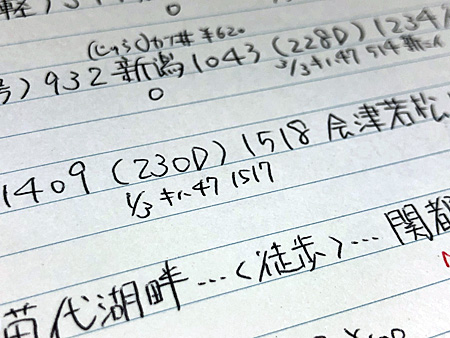 軽)
0
(じゅう)カブ# ¥620
号) 932 新潟 1043 (228D) 1234
0
3/3 キハ47 514
1409 (230D) 1518 会津若松
1/3 キハ47 1517
苗代湖畔…〈徒歩〉…関都